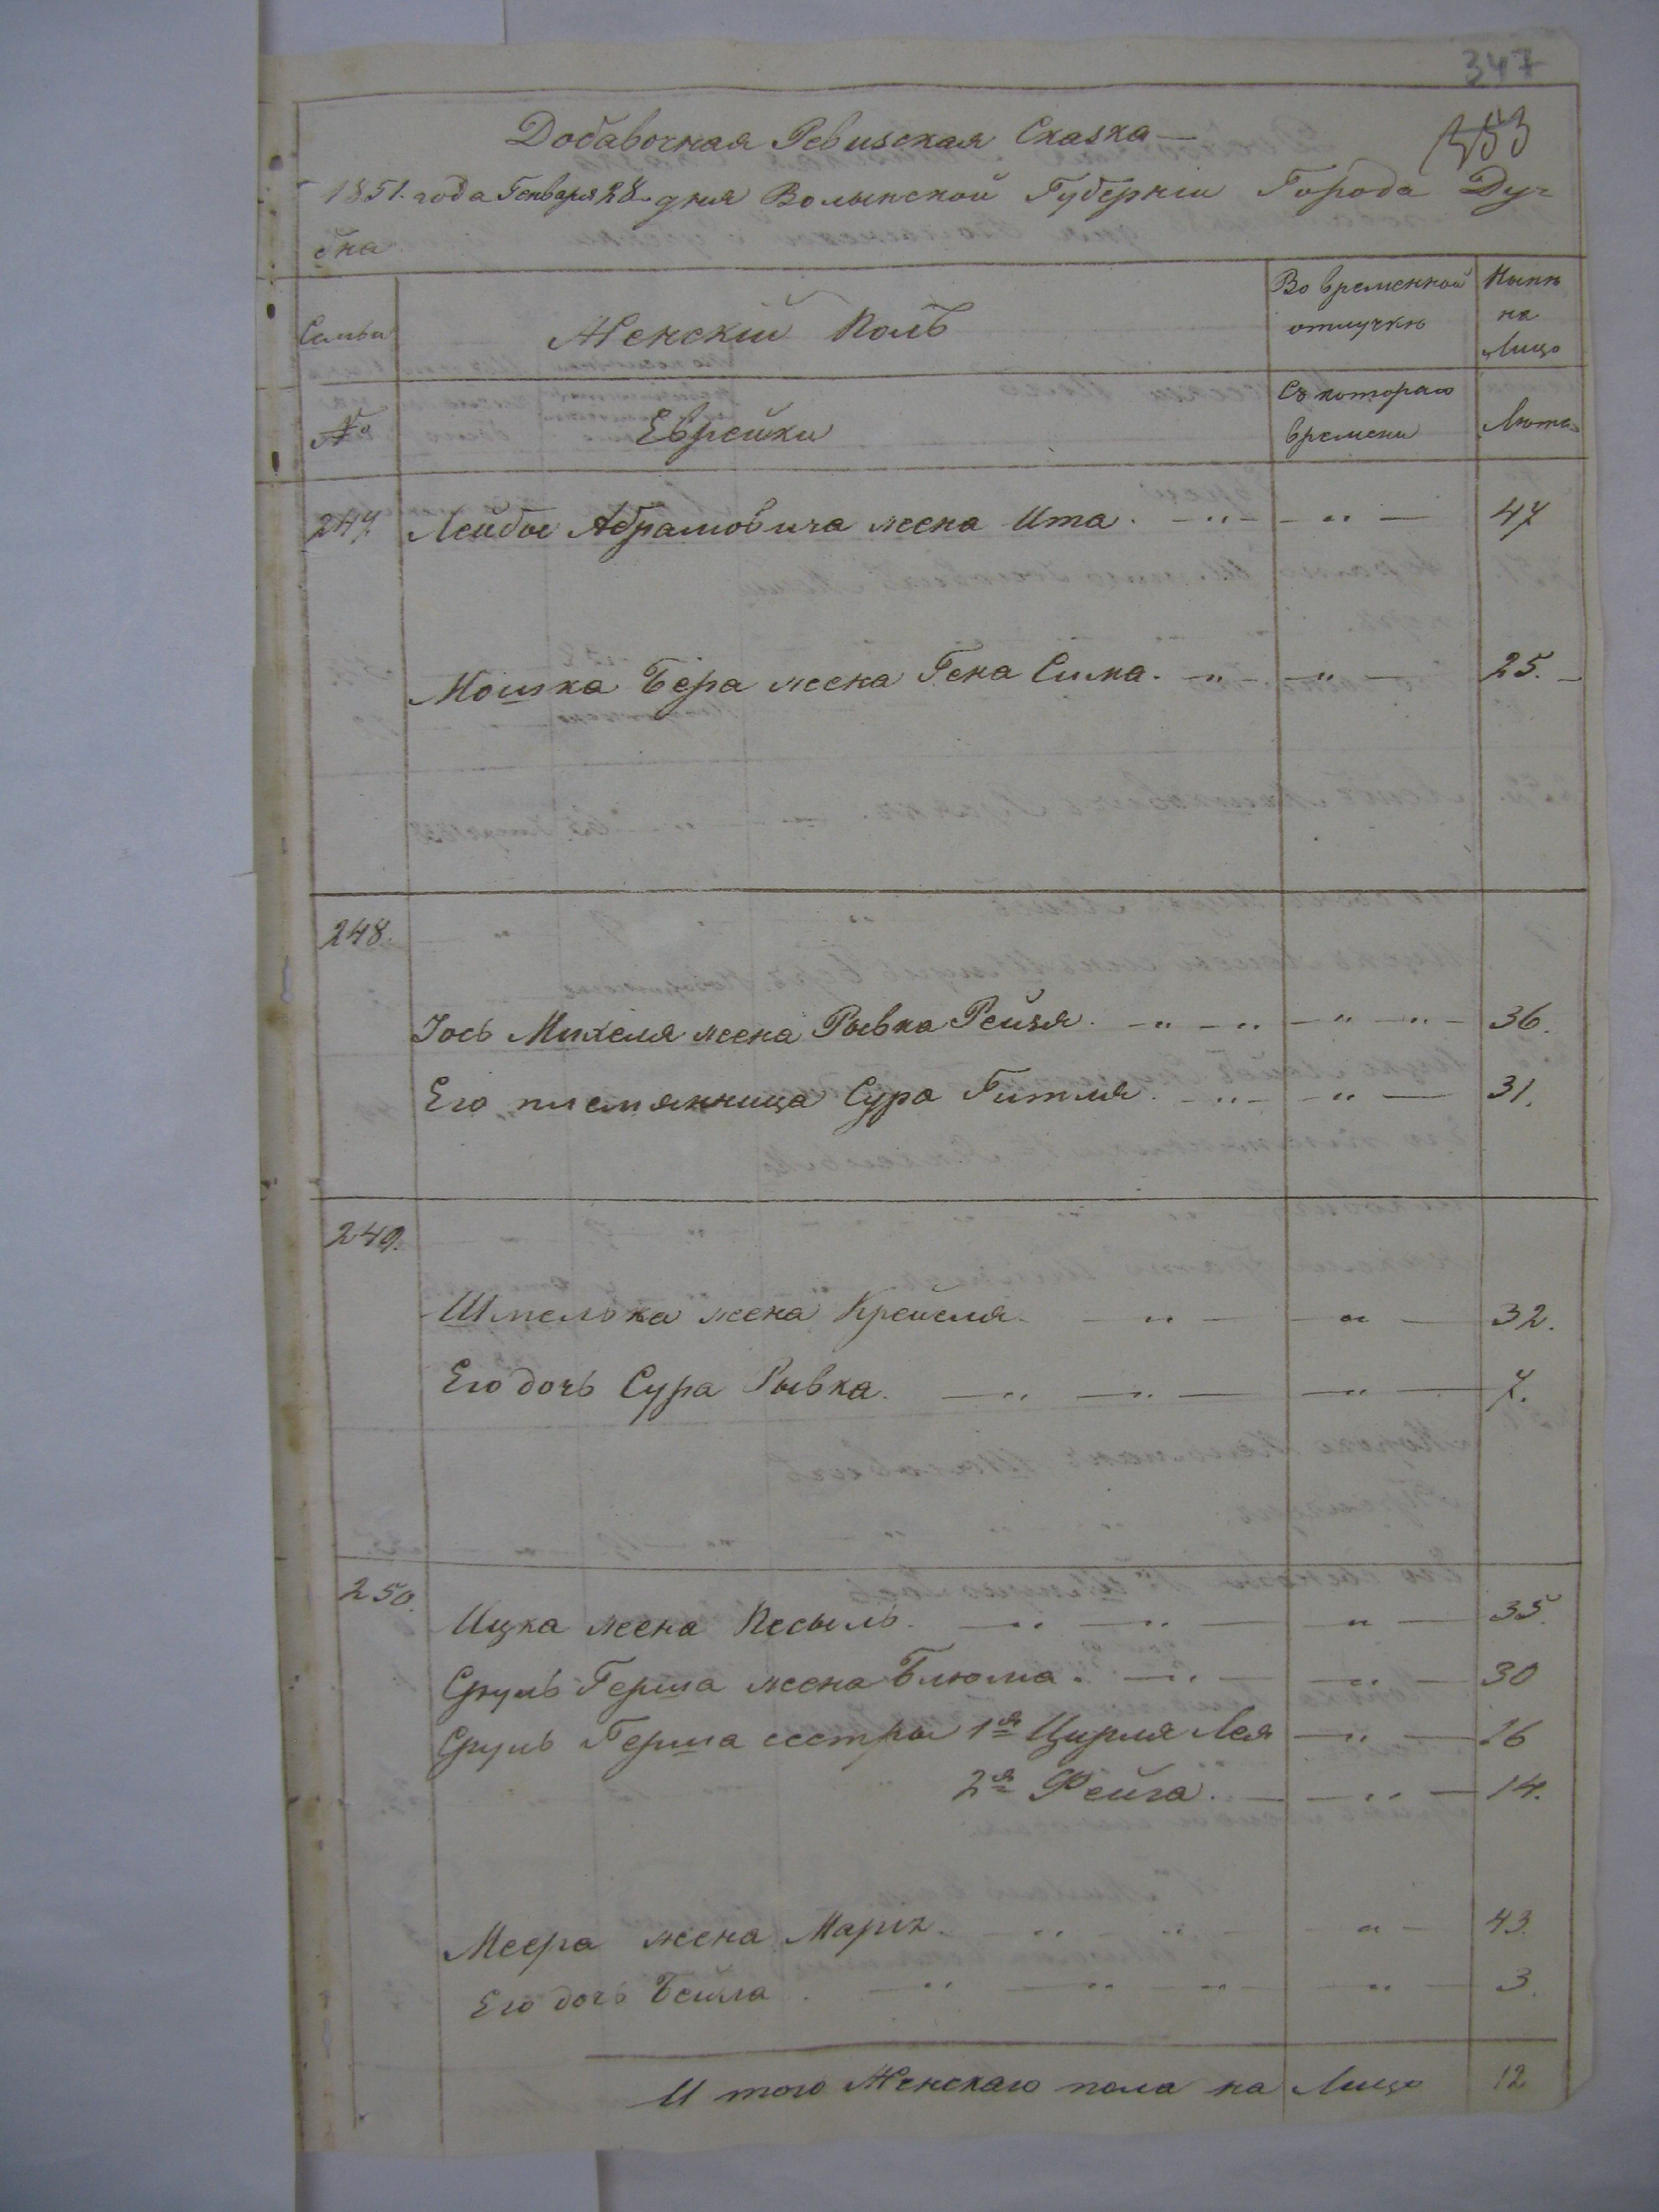 347
353
Добавочная Ревизская Сказка —
1851. года Генваря 28 дня Волынской Губерніи Города Ду-
бна
Семьи Женскій Полъ Во временной отлучкѣ Нынѣ на Лицо
№ Еврейки Съ котораго времени Лѣта
247. Лейбы Абрамовича жена Ита. — " — — " — 47
Мошка Бера жена Гена Сима. — " — — " — 25. —
248.
Іось Михеля жена Рывка Рейзя. — " — " — " — " — 36.
Его племянница Сура Гитля. — " — — " — 31.
249.
Шмелька жена Крейселя. — " — — " — 32.
Его дочь Сура Рывка. — " — " — — " — 7.
250. Ицка жена Песыль. — " — " — — " — 35.
Сруль Герша жена Блюма. — " — — " — 30
Сруль Герша сестры 1я Цирля Лея — " — 16
2я Фейга. — — " — 14.
Меера жена Маріа. — " — " — — " — 43.
Его дочь Бейла. — " — " — " — — " — 3.
И того Женскаго пола на Лицо 12